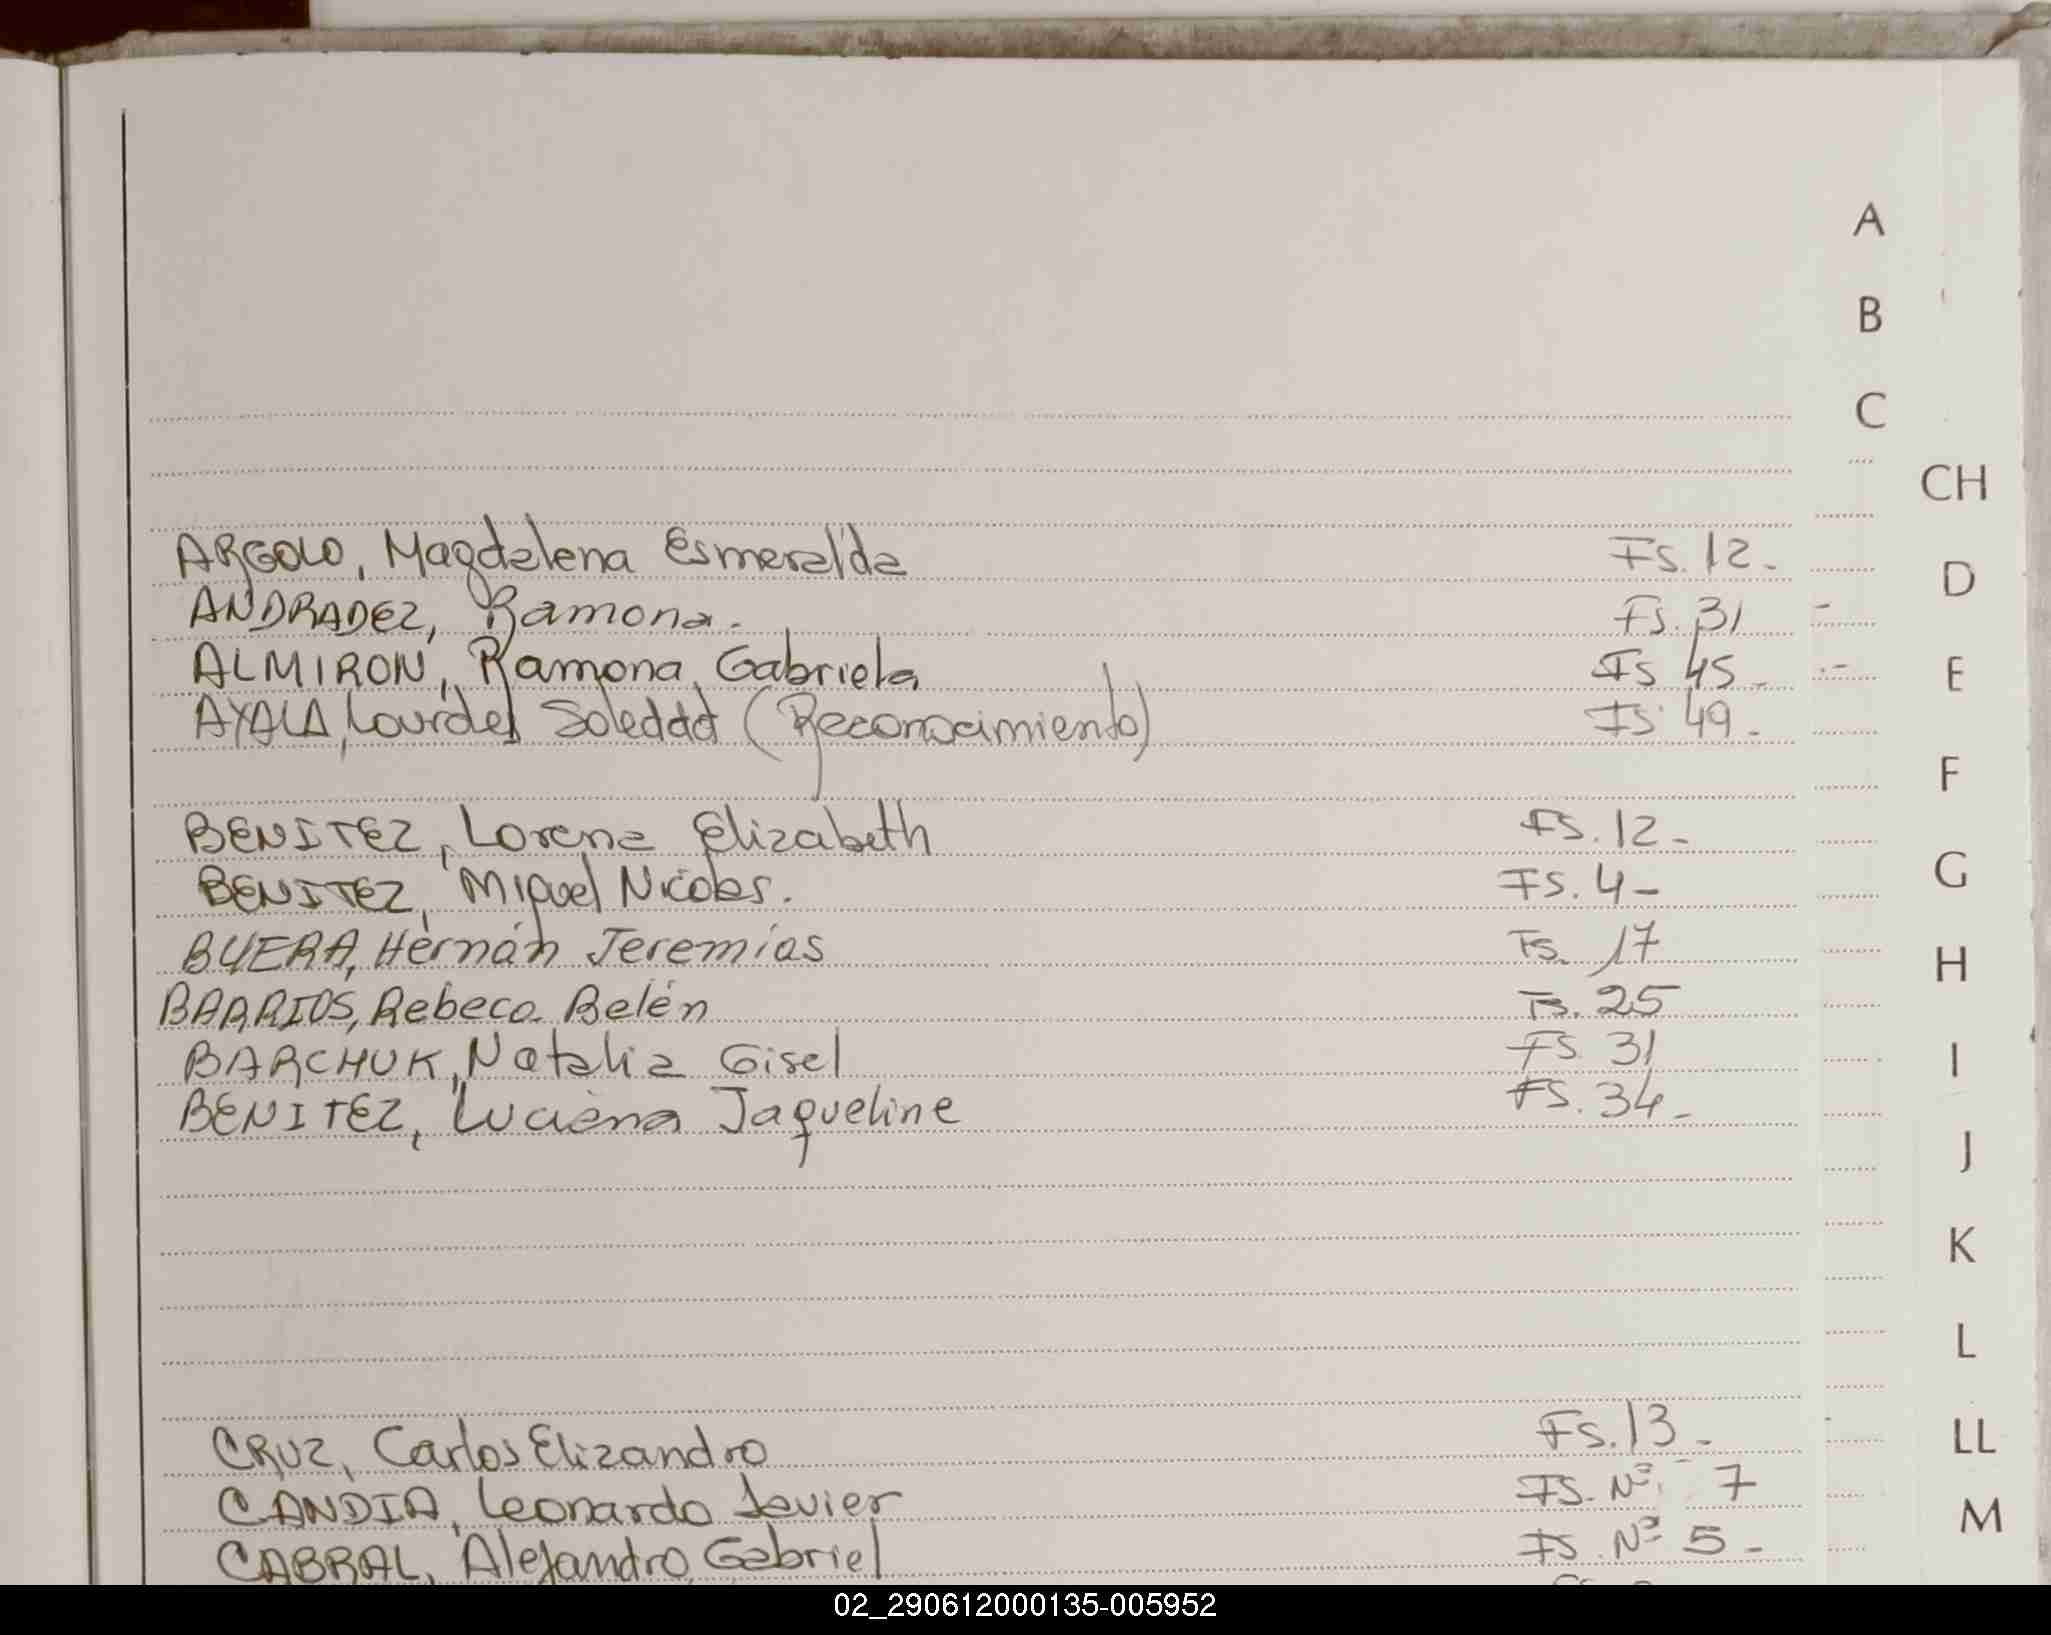 A
B
C
CH
ARGOLO, Magdalena Esmeralda Fs. 12.
D
ANDRADEZ, Ramona. Fs. 31 -
ALMIRON, Ramona Gabriela Fs 45 -
E
AYALA, Lourdes Soledad (Reconocimiento) Fs 49.
F
BENITEZ, Lorena Elizabeth Fs. 12 -
G
BENITEZ, Miguel Nicolas. Fs. 4 -
BUERA, Hernán Jeremías Fs. 17
H
BARRIOS, Rebeca Belén Fs. 25
BARCHUK, Natalia Gisel Fs. 31
I
BENITEZ, Luciana Jaqueline Fs. 34 -
J
K
L
CRUZ, Carlos Elizandro Fs. 13 -
LL
CANDIA, Leonardo Javier Fs. Nº 7
M
CABRAL, Alejandro Gabriel Fs. Nº 5 -
02_290612000135-005952